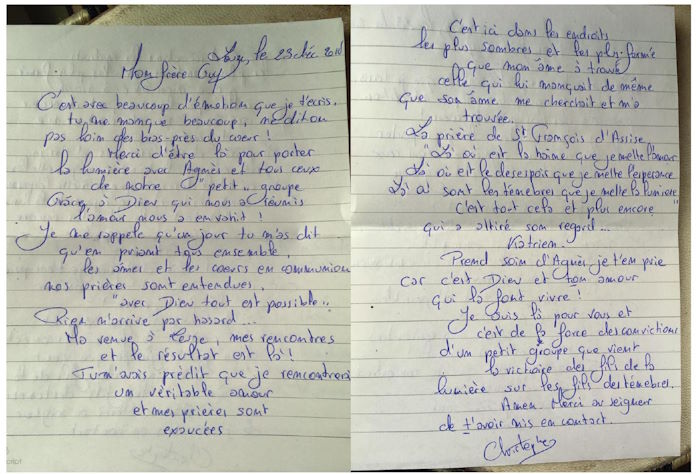 le 23 déc
Mon frère Guy
C'est avec beaucoup d'émotion que je t'écris.
tu me manque beaucoup, ne dit on
pas loin des bras - près du cœur !
Merci d'être là pour porter
la lumière avec Agnès et tous ceux
de notre "petit" groupe
Grâce à Dieu qui nous a réunis
l'amour nous a envahit !
Je me rappele qu'un jour tu m'as dit
qu'en priant tous ensemble,
les âmes et les cœurs en communion
nos prières sont entendues,
"avec Dieu tout est possible".
Rien n'arrive par hasard...
Ma venue à , mes rencontres
et le résultat est là !
Tu m'avais prédit que je rencontrerai
un véritable amour
et mes prières sont
exaucées
C'est ici dans les endroits
les plus sombres et les plus fermé
que mon âme à trouvé
celle qui lui manquait de même
que son âme me cherchait et m'a
trouvée.
La prière de St François d'Assise
"Là où est la haine que je mette l'amour
Là où est le desespois que je mette l'esperance
Là où sont les ténèbres que je mette la lumiere"
C'est tout cela et plus encore
qui a attiré son regard...
Katriem.
Prend soin d'Agnès je t'em prie
car c'est Dieu et ton amour
qui la font vivre !
Je suis là pour vous et
c'est de la force des convictions
d'un petit groupe que vient
la victoire des fils de la
lumière sur les fils des ténèbres.
Amen Merci au seigneur
de t'avoir mis en contact.
Christophe
cript